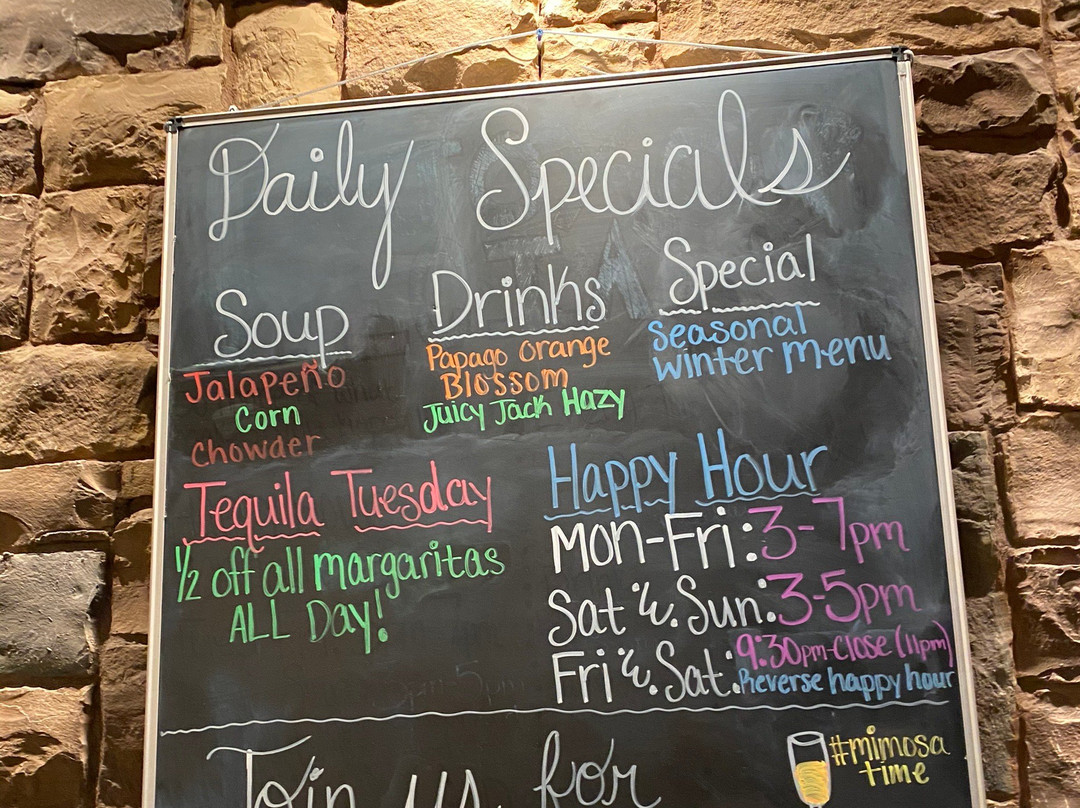 Daily Specials
Soup
Jalapeño
Corn
Chowder
Drinks
Papago Orange
Blossom
Juicy Jack Hazy
Special
Seasonal
Winter Menu
Tequila Tuesday
1/2 off all margaritas
ALL Day!
Happy Hour
Mon-Fri: 3-7pm
Sat & Sun: 3-5pm
Fri & Sat: 9:30pm-Close (11pm)
Reverse happy hour
Join us for
#mimosa
time